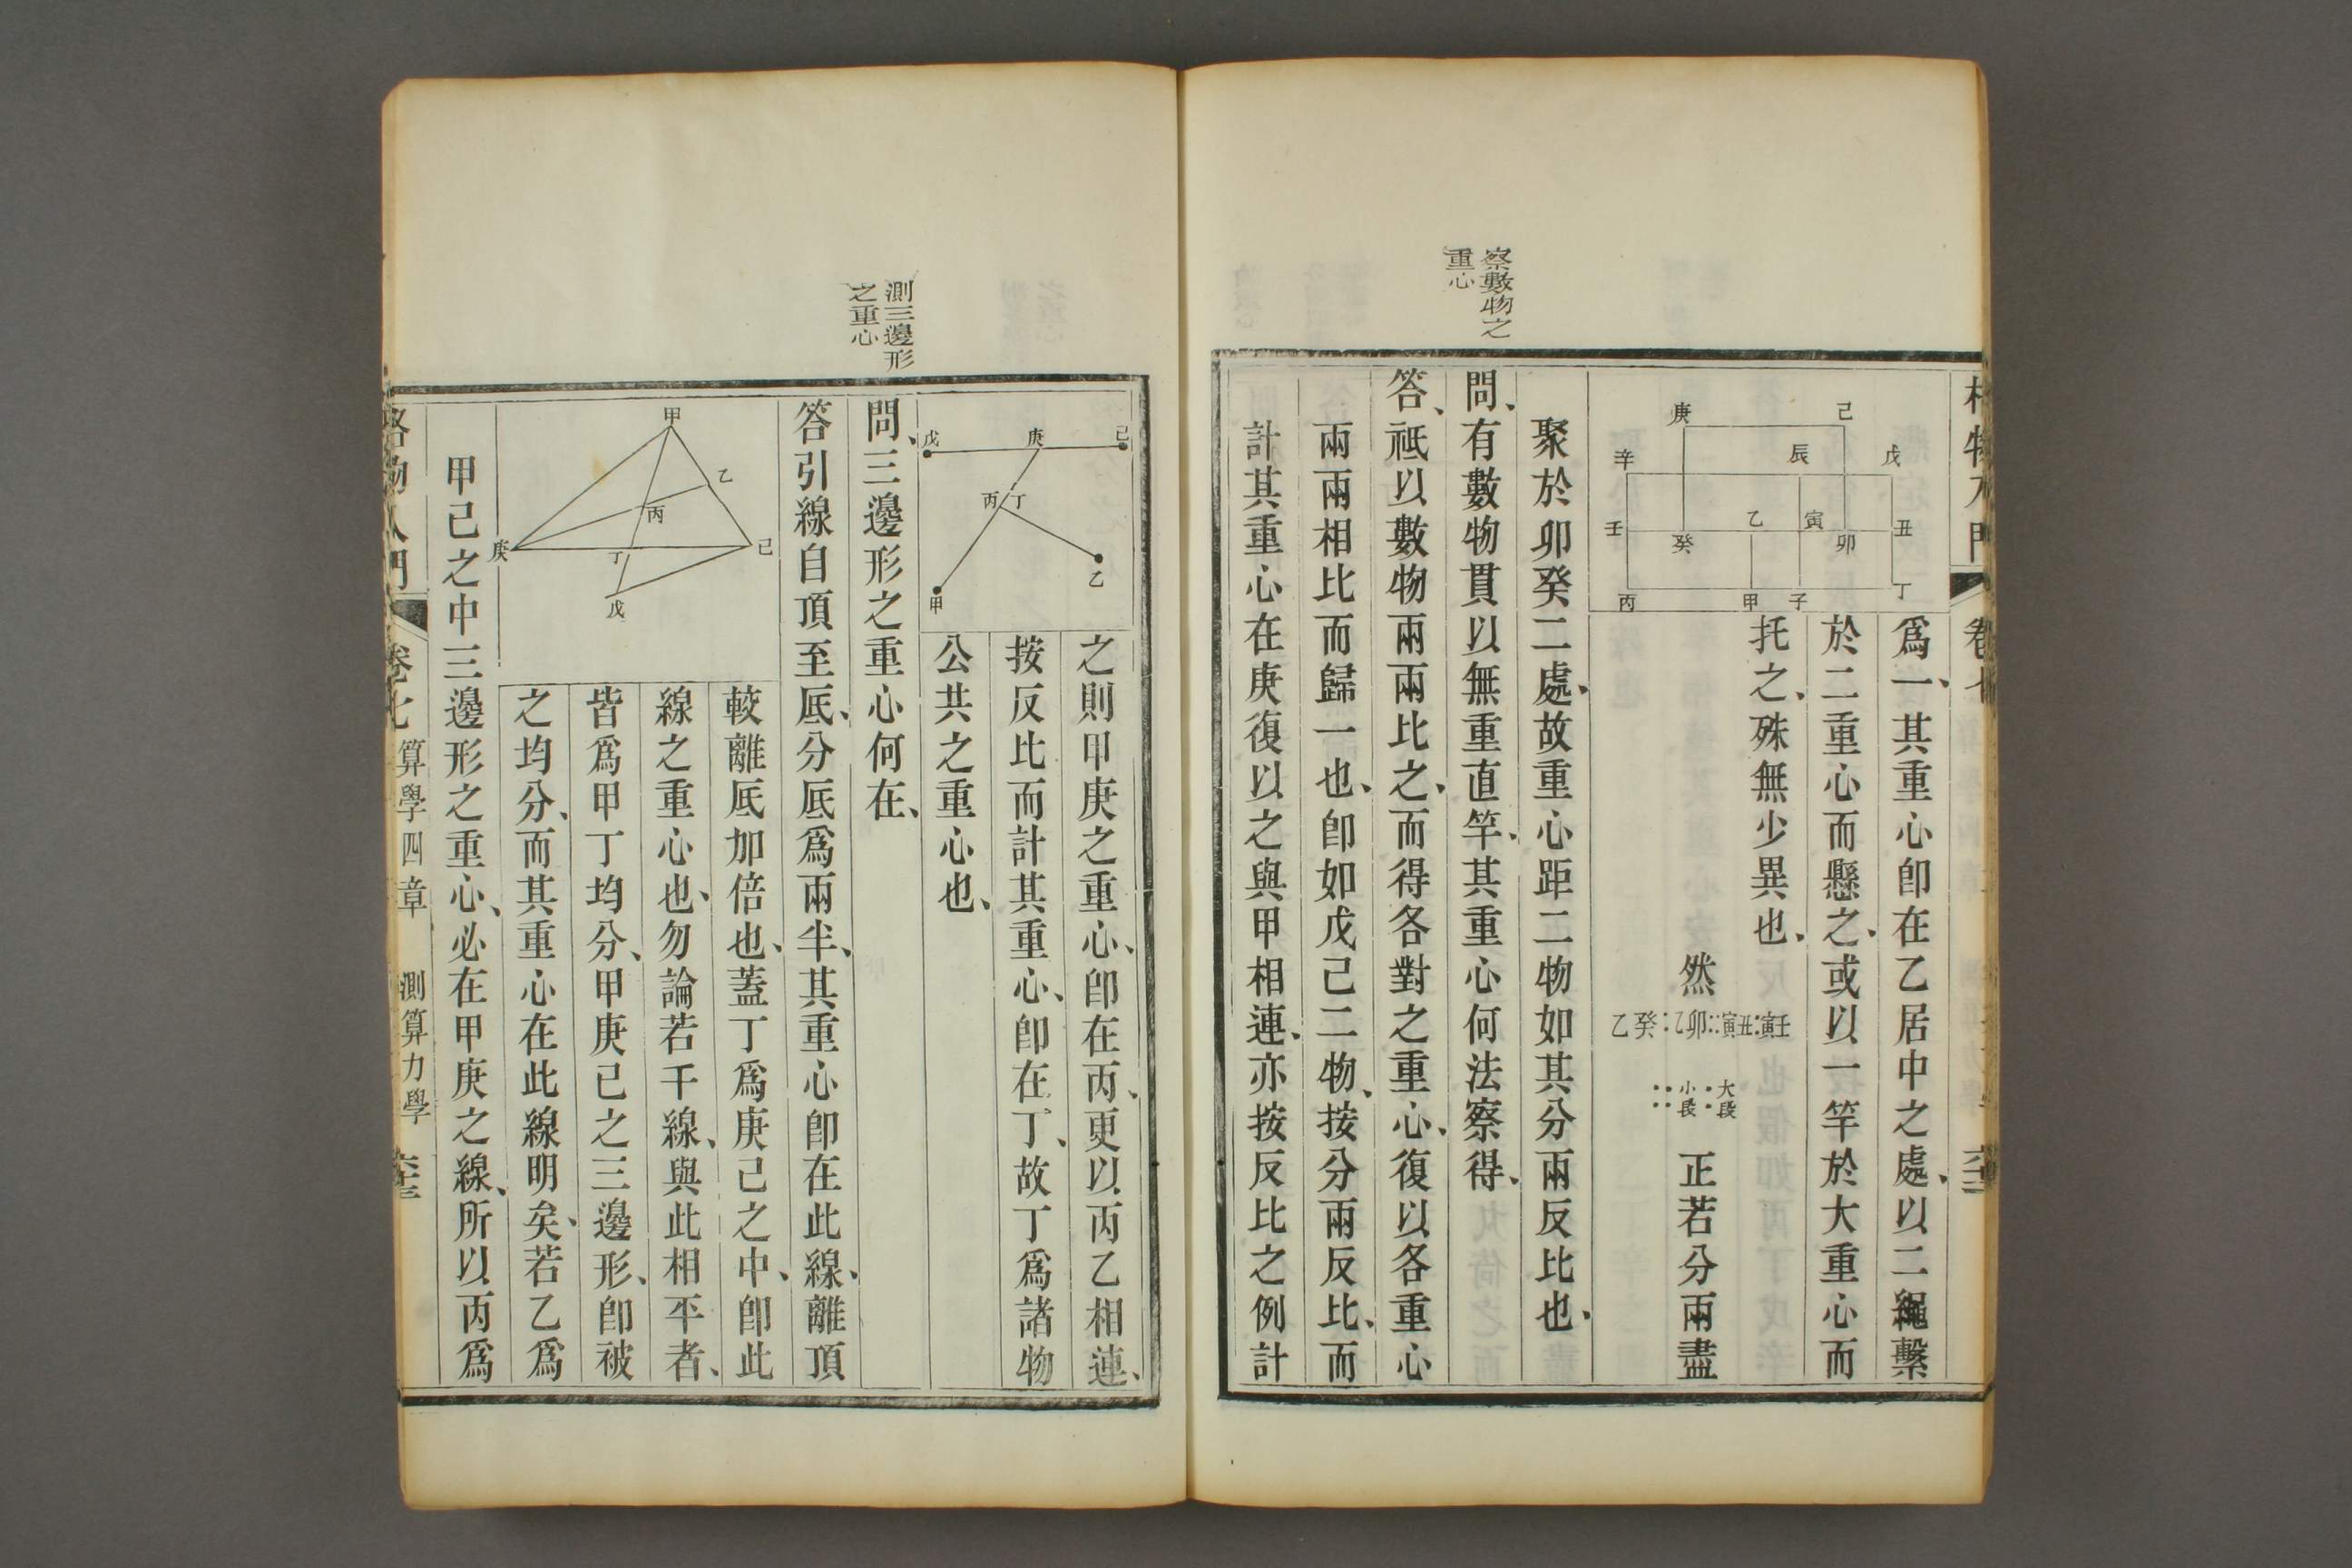 察數物之
重心
己
庚
戊
辰
辛
丑
寅
乙
壬
卯
癸
丁
子
甲
丙
爲一、其重心卽在乙居中之處、以二繩繫
於二重心而懸之、或以一竿於大重心而
托之、殊無少異也、
然
壬寅:丑寅::卯乙:癸乙
大段:小段::
正若分兩盡
聚於卯癸二處、故重心距二物如其分兩反比也、
問、有數物貫以無重直竿、其重心何法察得、
答、祗以數物兩兩比之、而得各對之重心、復以各重心
兩兩相比而歸一也、卽如戊己二物、按分兩反比、而
計其重心在庚復以之與甲相連、亦按反比之例計
測三邊形
之重心
己
庚
戊
丁
丙
乙
甲
之則甲庚之重心、卽在丙、更以丙乙相連、
按反比而計其重心、卽在丁、故丁爲諸物
公共之重心也、
問、三邊形之重心何在、
答引線自頂至底、分底爲兩半、其重心卽在此線、離頂
甲
乙
丙
己
庚
丁
戊
較離底加倍也、蓋丁爲庚己之中、卽此
線之重心也、勿論若干線、與此相平者、
皆爲甲丁均分、甲庚己之三邊形、卽被
之均分、而其重心在此線明矣、若乙爲
甲己之中三邊形之重心、必在甲庚之線、所以丙爲
格物入門
卷七
算學四章
測算力學
六十三